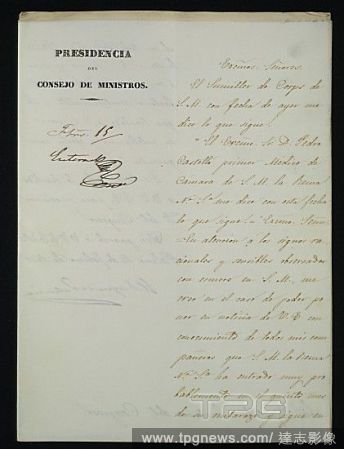 PRESIDENCIA
DEL
CONSEJO DE MINISTROS.
15
Excmos. Señores.
El Sumiller de Corps de
S. M. con fecha de ayer me
dice lo que sigue.
"El Excmo. Sr. D. Pedro
Castelló primer Médico de
Cámara de S. M. la Reina
Na. Sa. me dice con esta fecha
lo que sigue = Excmo. Señor =
En atencion a los signos ra-
cionales y sensibles observados
con esmero en S. M., me
veo en el caso de poder po-
ner en noticia de V. E. con
conocimiento de todos mis com-
pañeros que S. M. la Reina
Na. Sa. ha entrado muy pro-
bablemente en el quinto mes
de su embarazo y sigue en
TPG
www.tpgnews.com / 達志影像